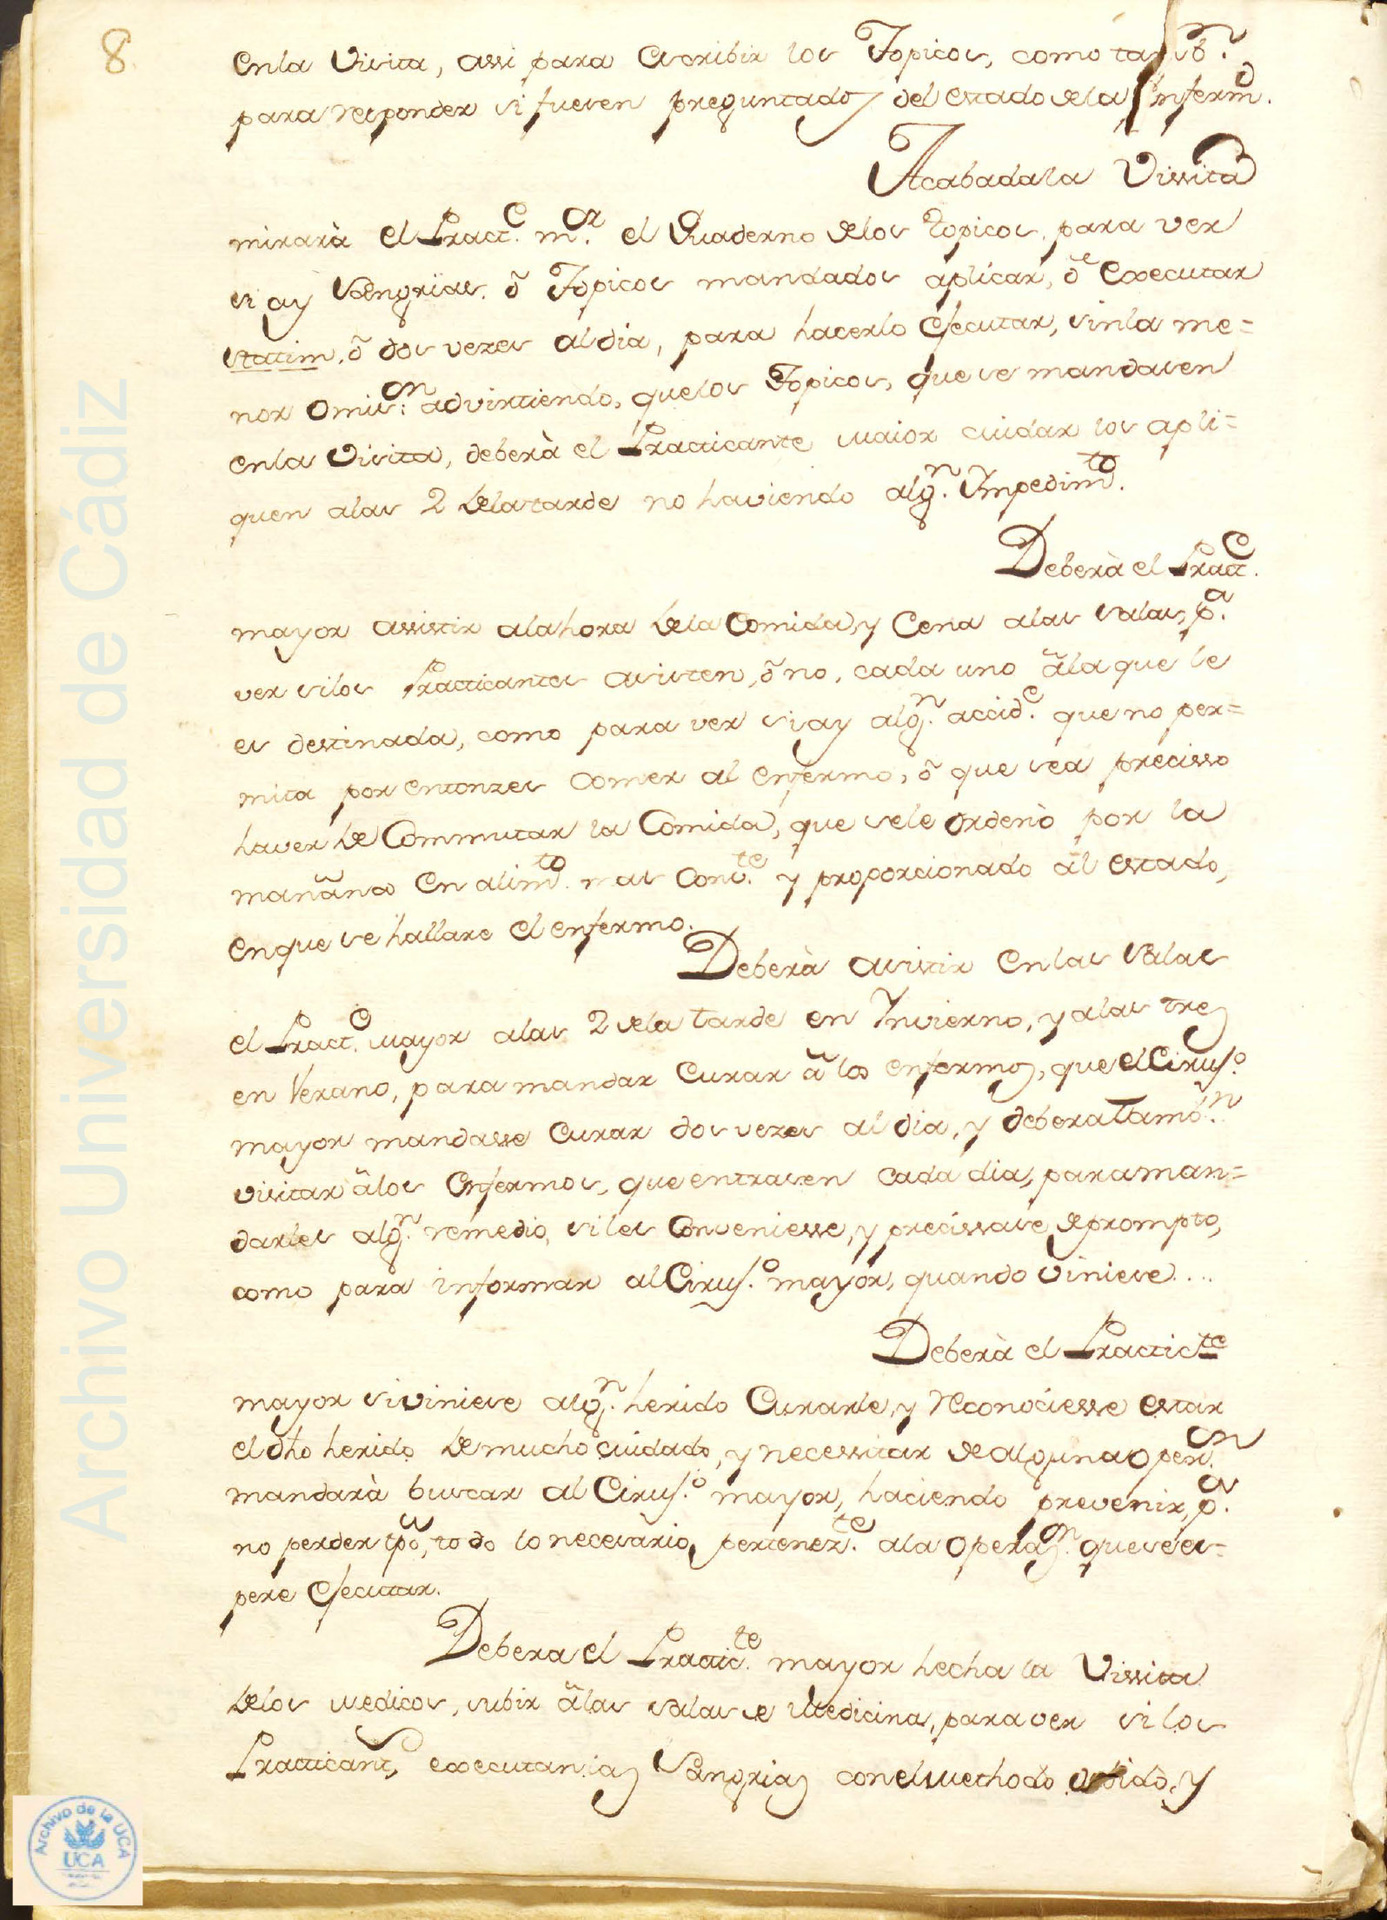 8
en la Visita, assi para escribir los Topicos, como tamb.n
para responder si fuesen preguntados del estado dela Enferm.d
Acabada la Vissita
mirarà el Pract.e m.or el Quaderno delos Topicos, para ver
si ay Sangrias, õ Topicos mandados aplicar, õ executar
statim, õ dos vezes al dia, para hacerlo efecutar, sin la me=
nor omis.on advirtiendo, que los Topicos, que se mandasen
en la Visita, deberà el Practicante maior cuidar los apli=
quen alas 2 dela tarde no haviendo alg.n Ympedim.to
Deberà el Pract.e
mayor assistir ala hora dela Comida, y Cena alas salas, p.a
ver silos Practicantes asisten, õ no, cada uno ãla que le
es destinada, como para ver si ay alg.n accid.e que no per=
mita por entonzes comer al enfermo, õ que sea precisso
haver de Commutar la Comida, que sele ordenò por la
mañana en alim.to mas Conv.te y proporcionado ãl estado,
en que se hallare el enfermo.
Deberà asistir en las Salas
el Pract.e mayor alas 2 dela tarde en Ynvierno, y alas tres
en Verano, para mandar Curar ã los enfermos, que el Ciruj.o
mayor mandasse Curar dos vezes al dia, y debera tamb.n
visitar ãlos Enfermos, que entrasen cada dia, para man=
darles alg.n remedio, si les Conveniesse, y precissase de prompto,
como para informar al Ciruj.o mayor, quando Viniese...
Deberà el Practic.te
mayor si viniese alg.n herido Curarle, y reconociesse estar
el dho herido de mucho cuidado, y necessitar de alguna oper.on
mandarà buscar al Ciruj.o mayor, haciendo prevenir, p.a
no perder tpõ, todo lo necesàrio, pertenez.te ala Operaz.on que se es=
pere efecutar.
Debera el Practic.te mayor hecha la Vissita
delos medicos, subir ãlas salas de Medicina, para ver si los
Practicant.s executan las Sangrias con el methodo debido, y
Archivo Universidad de Cádiz
Archivo de la UCA
UCA